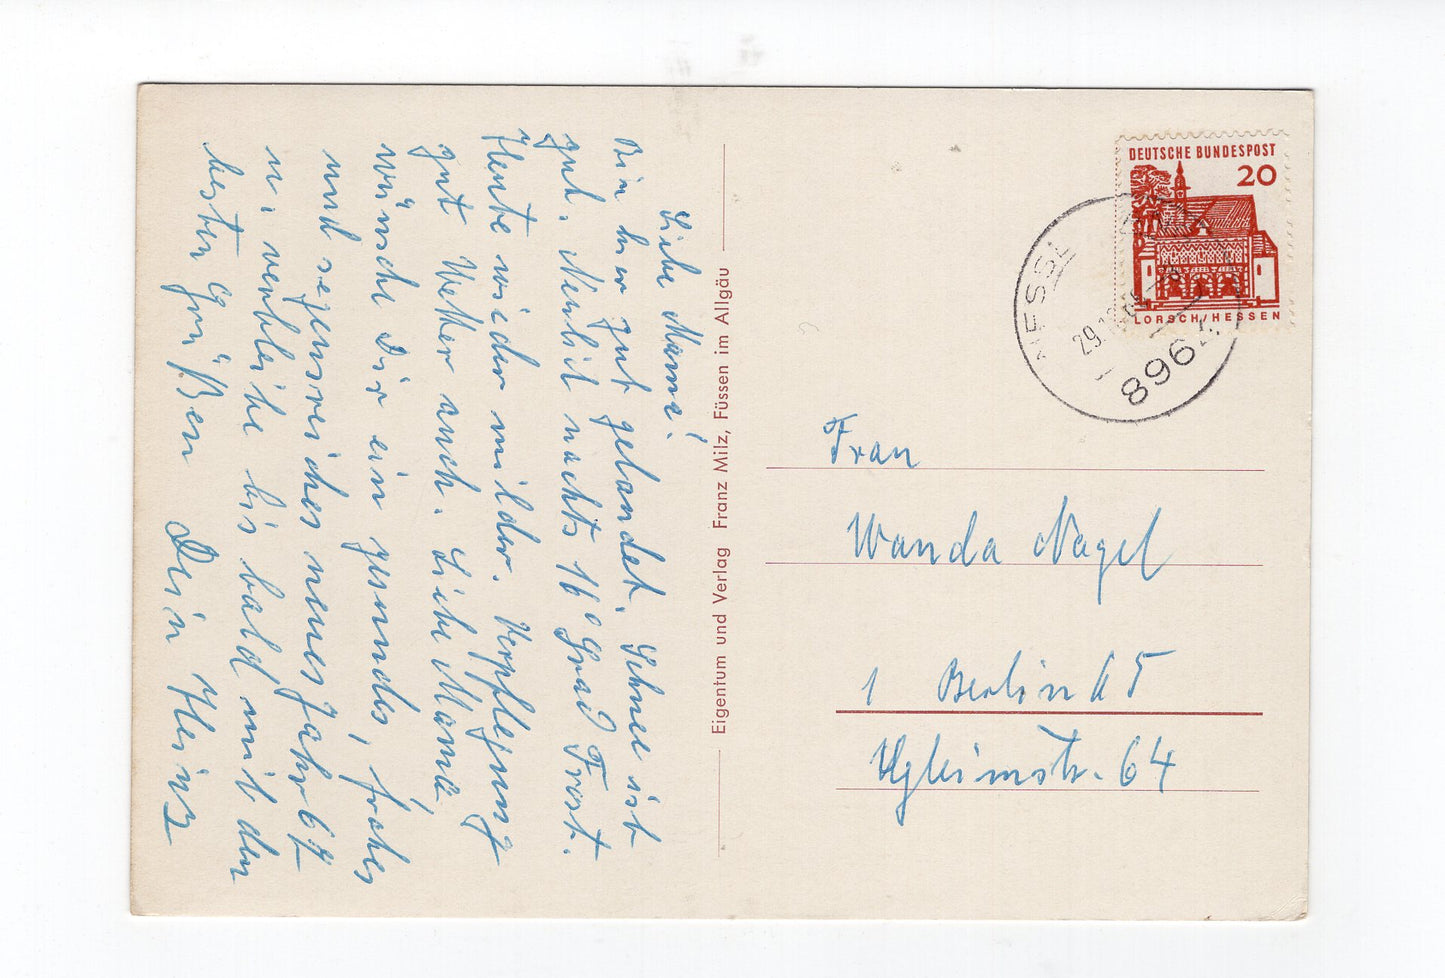 Liebe Mama!
Bin hier gut gelandet. Schnee ist
gut. Neulich nachts 16° Grad Frost.
Heute wieder milder. Verpflegung
gut Wetter auch. Liebe Mama
wünsche Dir ein gesundes, frohes
und segensreiches neues Jahr 67
u. verbleibe bis bald mit den
besten Grüßen Dein Heinz
Eigentum und Verlag Franz Milz, Füssen im Allgäu
DEUTSCHE BUNDESPOST
20
LORSCH/HESSEN
NESSEL
29.12.
8964
Frau
Wanda Nagel
1 Berlin 65
str. 64